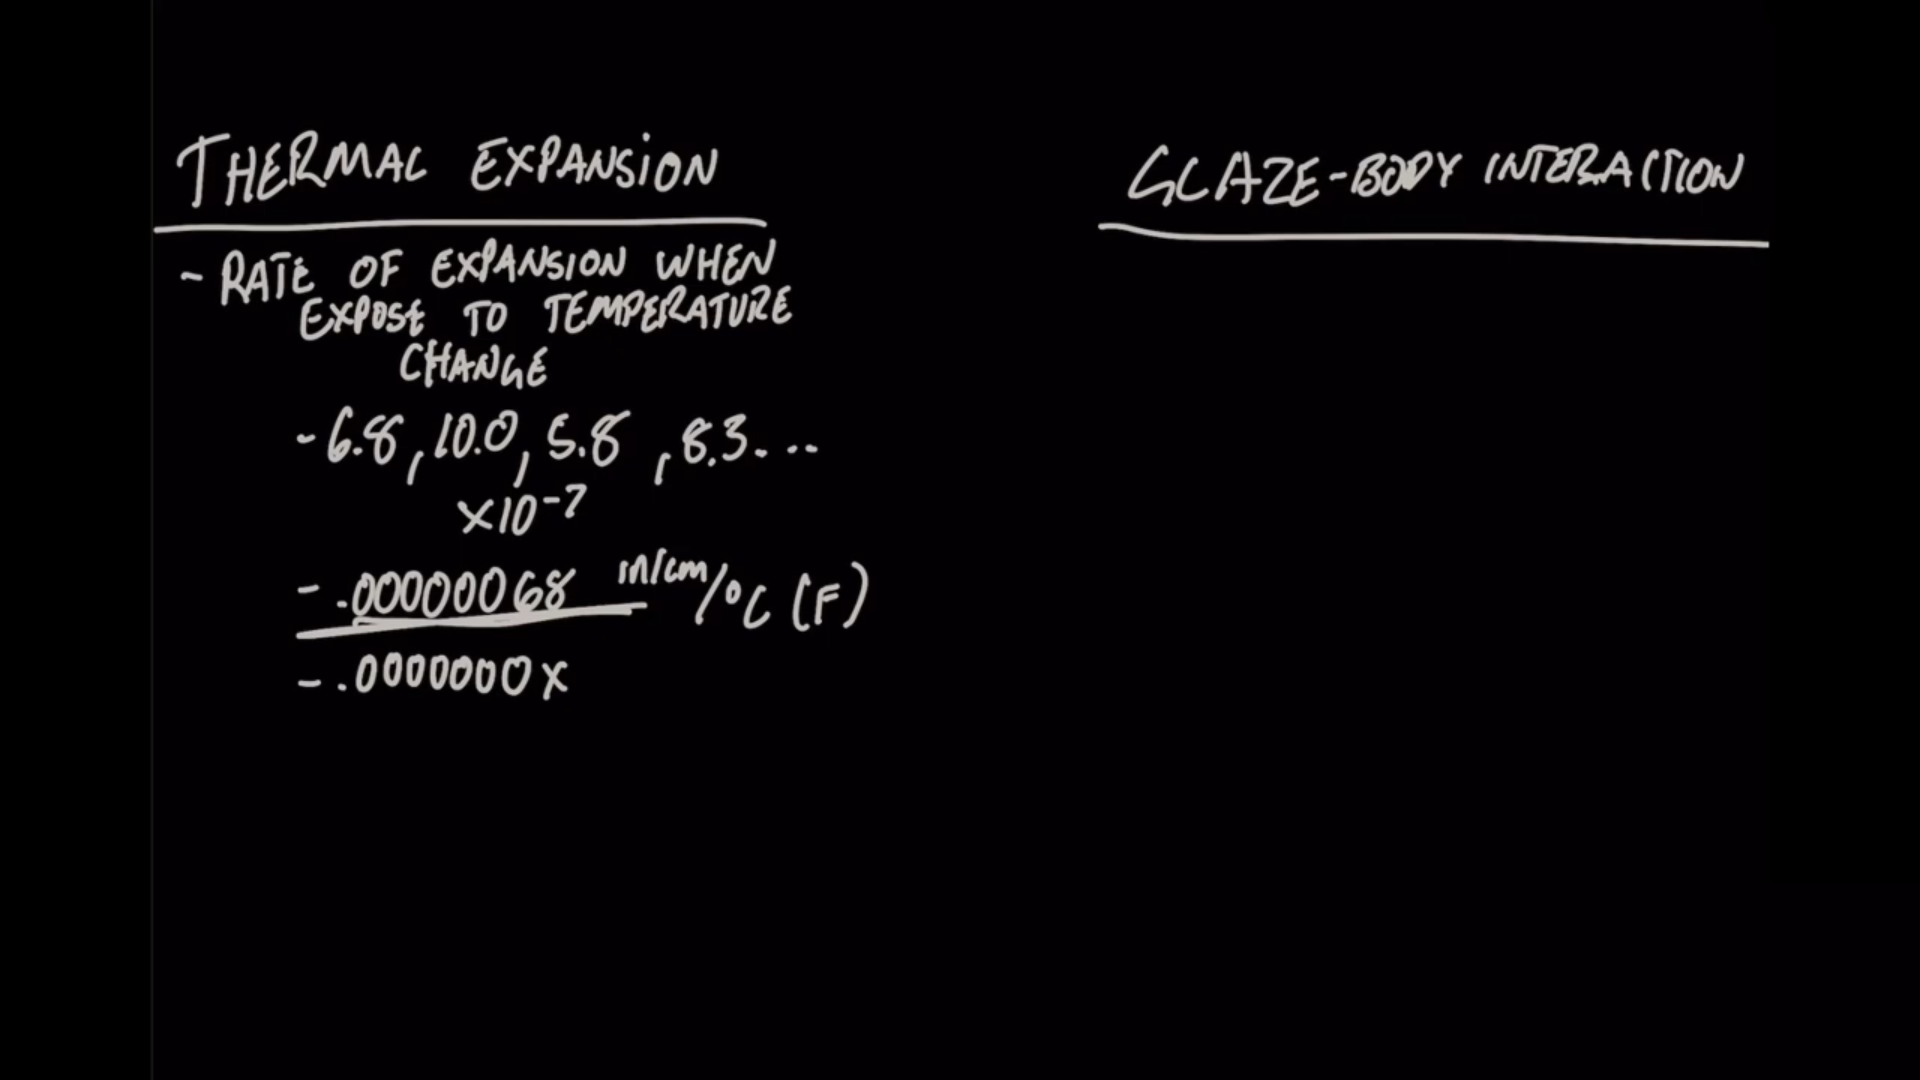 THERMAL EXPANSION
- RATE OF EXPANSION WHEN
EXPOSE TO TEMPERATURE
CHANGE
- 6.8, 10.0, 5.8, 8.3...
x10-7
- .00000068 in/cm/°C (F)
- .0000000x
GLAZE-BODY INTERACTION